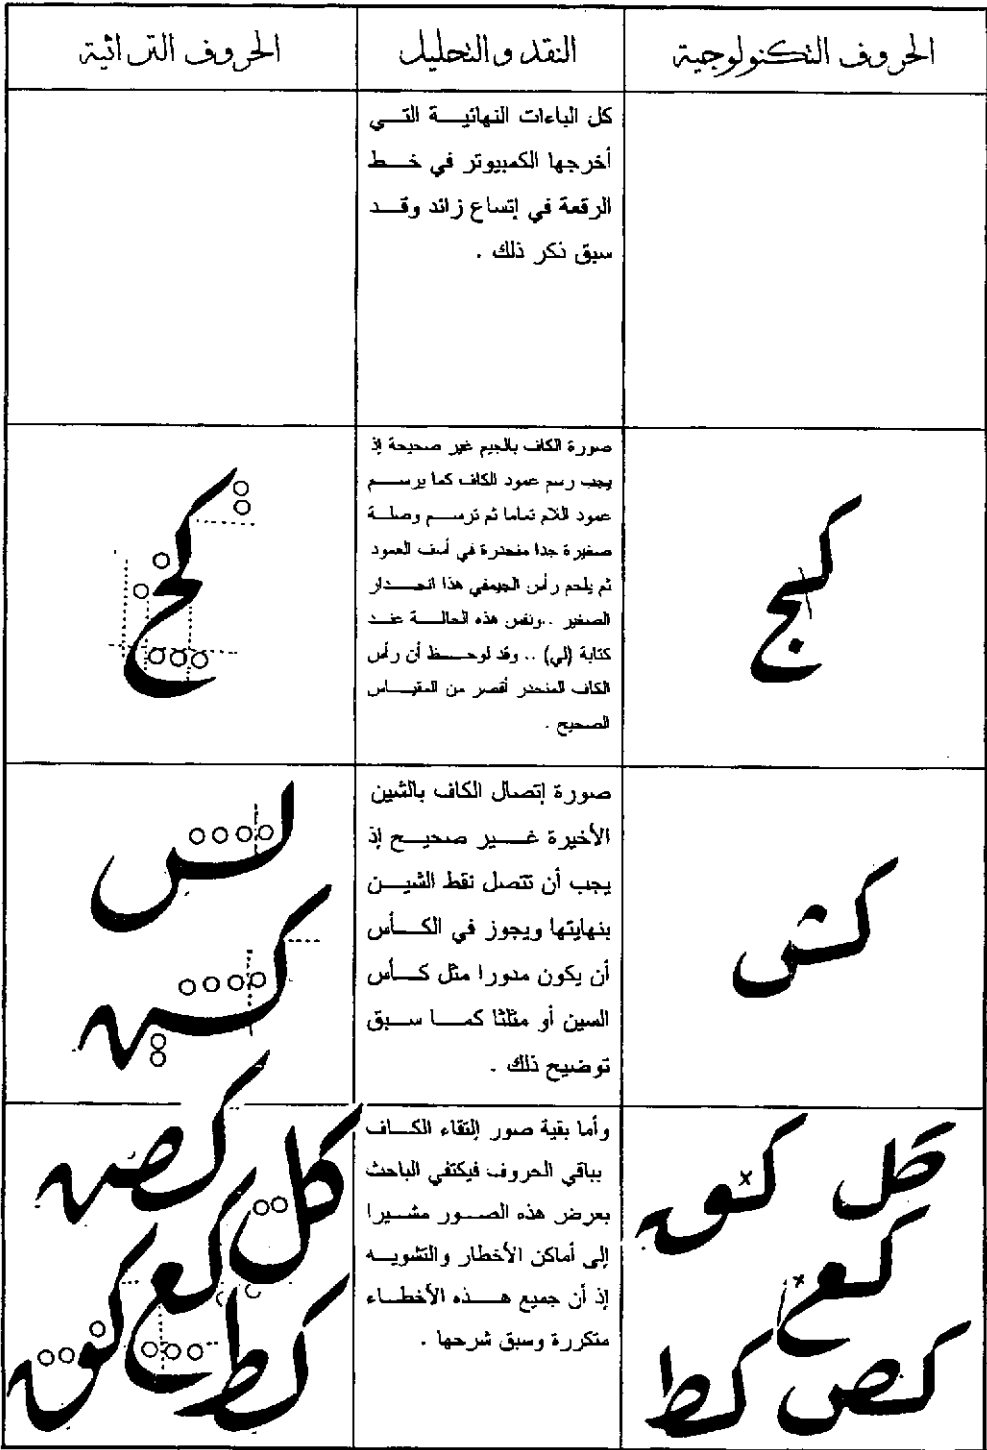 الحروف التكنولوجية
النقد والتحليل
الحروف التراثية
كل الباءات النهائية التي
أخرجها الكمبيوتر في خط
الرقعة في إتساع زائد وقد
سبق ذكر ذلك .
كج
صورة الكاف بالجيم غير صحيحة إذ
يجب رسم عمود الكاف كما يرسم
عمود اللام تماما ثم ترسم وصلة
صغيرة جدا منحدرة في أسف العمود
ثم يلحم رأس الجيمفي هذا انحدار
الصغير ..ونفس هذه الحالة عند
كتابة (لي) .. وقد لوحظ أن رأس
الكاف المنحدر أقصر من المقياس
الصحيح .
كج
كش
صورة إتصال الكاف بالشين
الأخيرة غير صحيح إذ
يجب أن تتصل نقط الشين
بنهايتها ويجوز في الكأس
أن يكون مدورا مثل كأس
السين أو مثلثا كما سبق
توضيح ذلك .
لس
كل كق
كع
كص كط
وأما بقية صور إلتقاء الكاف
بباقي الحروف فيكتفي الباحث
بعرض هذه الصور مشيرا
إلى أماكن الأخطار والتشويه
إذ أن جميع هذه الأخطاء
متكررة وسبق شرحها .
كص
كل
كع
كق
كط